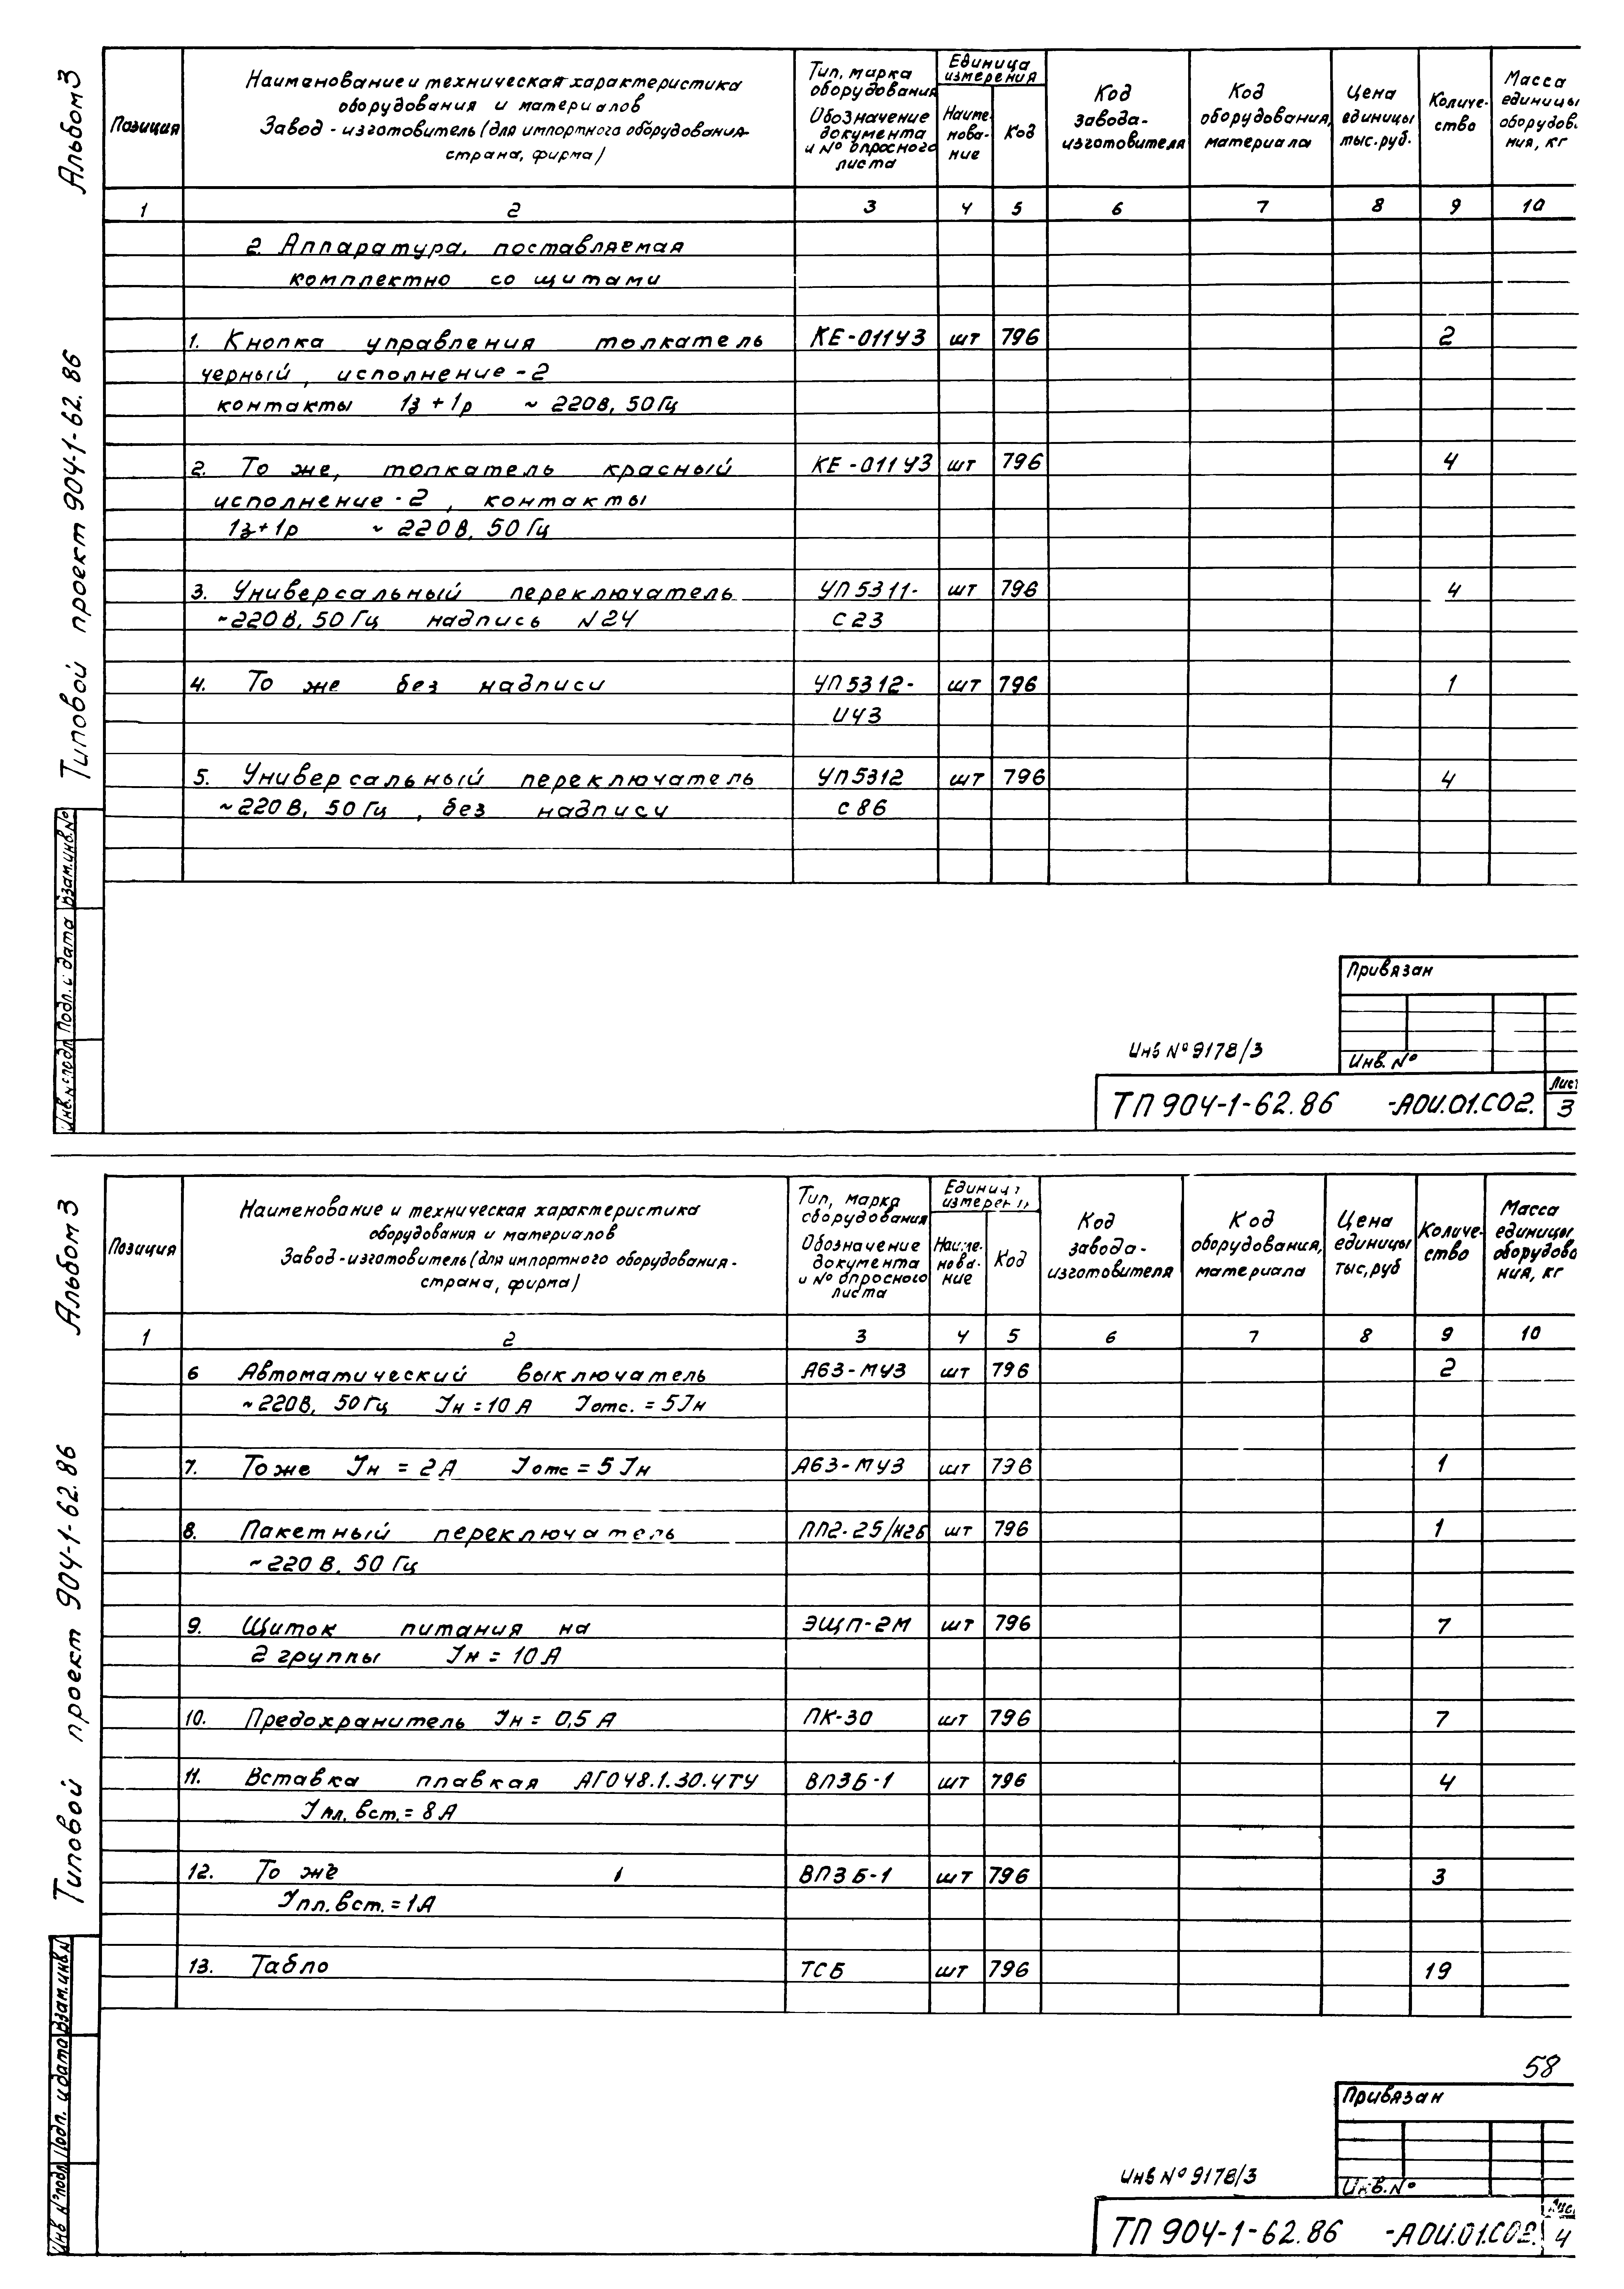 Альбом 3
Типовой проект 904-1-62.86
Взам.инв.№
Подп. и дата
Инв.№подл
Позиция
Наименование и техническая характеристика
оборудования и материалов
Завод-изготовитель (для импортного оборудования-
страна, фирма)
Тип, марка
оборудования
Обозначение
документа
и № опросного
листа
Единица
измерения
Наиме-
нова-
ние
Код
Код
завода-
изготовителя
Код
оборудования,
материала
Цена
единицы
тыс.руб.
Количе-
ство
Масса
единицы
оборудов.
ния, кг
1 2 3 4 5 6 7 8 9 10
2. Аппаратура, поставляемая
комплектно со щитами
1. Кнопка управления толкатель КЕ-011У3 шт 796 2
черный, исполнение-2
контакты 1з+1р ~220В, 50Гц
2. То же, толкатель красный КЕ-011У3 шт 796 4
исполнение-2, контакты
1з+1р ~220В, 50Гц
3. Универсальный переключатель УП5311- шт 796 4
~220В, 50Гц надпись N24 С23
4. То же без надписи УП5312- шт 796 1
И43
5. Универсальный переключатель УП5312 шт 796 4
~220В, 50Гц, без надписи С86
Привязан
Инв.№
Инв №9178/3
ТП 904-1-62.86 -АОИ.01.СО2.
Лист
3
Альбом 3
Типовой проект 904-1-62.86
Взам.инв.№
Подп. и дата
Инв №подл
Позиция
Наименование и техническая характеристика
оборудования и материалов
Завод-изготовитель (для импортного оборудования-
страна, фирма)
Тип, марка
оборудования
Обозначение
документа
и № опросного
листа
Единица
измерен
Наиме-
нова-
ние
Код
Код
завода-
изготовителя
Код
оборудования,
материала
Цена
единицы
тыс,руб
Количе-
ство
Масса
единицы
оборудова
ния, кг
1 2 3 4 5 6 7 8 9 10
6 Автоматический выключатель А63-МУ3 шт 796 2
~220В, 50Гц Iн=10А Iотс.=5Iн
7. Тоже Iн=2А Iотс=5Iн А63-МУ3 шт 796 1
8. Пакетный переключатель ПП2-25/Н2Б шт 796 1
~220В, 50Гц
9. Щиток питания на ЭЩП-2М шт 796 7
2 группы Iн=10А
10. Предохранитель Iн=0,5А ПК-30 шт 796 7
11. Вставка плавкая АГ048.1.30.4ТУ ВП3Б-1 шт 796 4
Iпл.вст.=8А
12. То же ВП3Б-1 шт 796 3
Iпл.вст.=1А
13. Табло ТСБ шт 796 19
58
Привязан
Инв.№
Инв №9178/3
ТП 904-1-62.86 -АОИ.01.СО2.
Лис
4